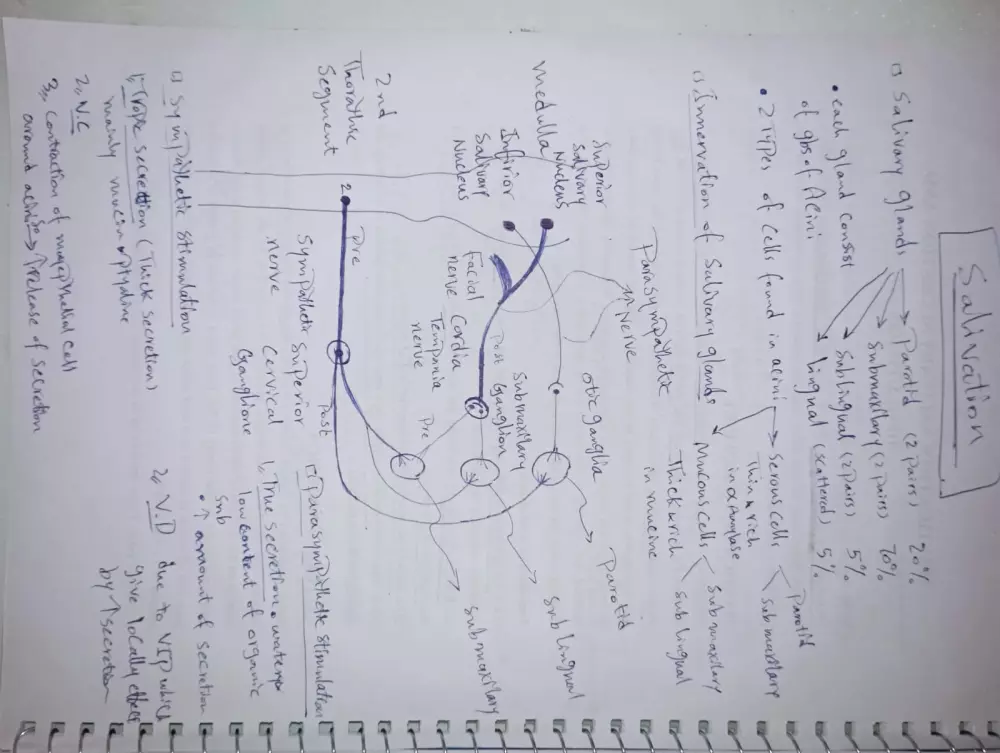 Salivation
□ Salivary glands → Parotid (2 pairs) 20%
Submaxilary (2 pairs) 70%
Sublingual (2 pairs) 5%
Lingual (scattered) 5%
• each gland consist
of gbs of Acini
• 2 Types of cells found in acini → Serous cells < Parotid
Submaxilary
Thin & rich
in α amylase
Mucous cells < Submaxilary
Sub lingual
Thick & rich
in mucine
□ Innervation of Salivary glands
Parasympathetic
Nerve
Superior
Salivary
Nucleus
Medulla
Infirior
Salivary
Nucleus
otic ganglia
Parotid
Submaxilary
Ganglion
Post
Sub lingual
Facial
nerve
Cordia
Tempania
nerve
Pre
Submaxilary
2nd
Thorathic
Segment
2
Pre
Sympathetic
nerve
Superior
Cervical
Ganglione
Post
□ Sympathetic stimulation
1, Trope secretion (Thick secretion)
mainly mucin & ptyaline
2, V.C
3, Contraction of myoepithelial cell
around acini → ↑ release of secretion
□ Parasympathetic stimulation
1, True secretion & watery
low content of organic
Snb
• ↑ amount of secretion
2, V.D due to VIP which
give locally effect
by ↑ secretion